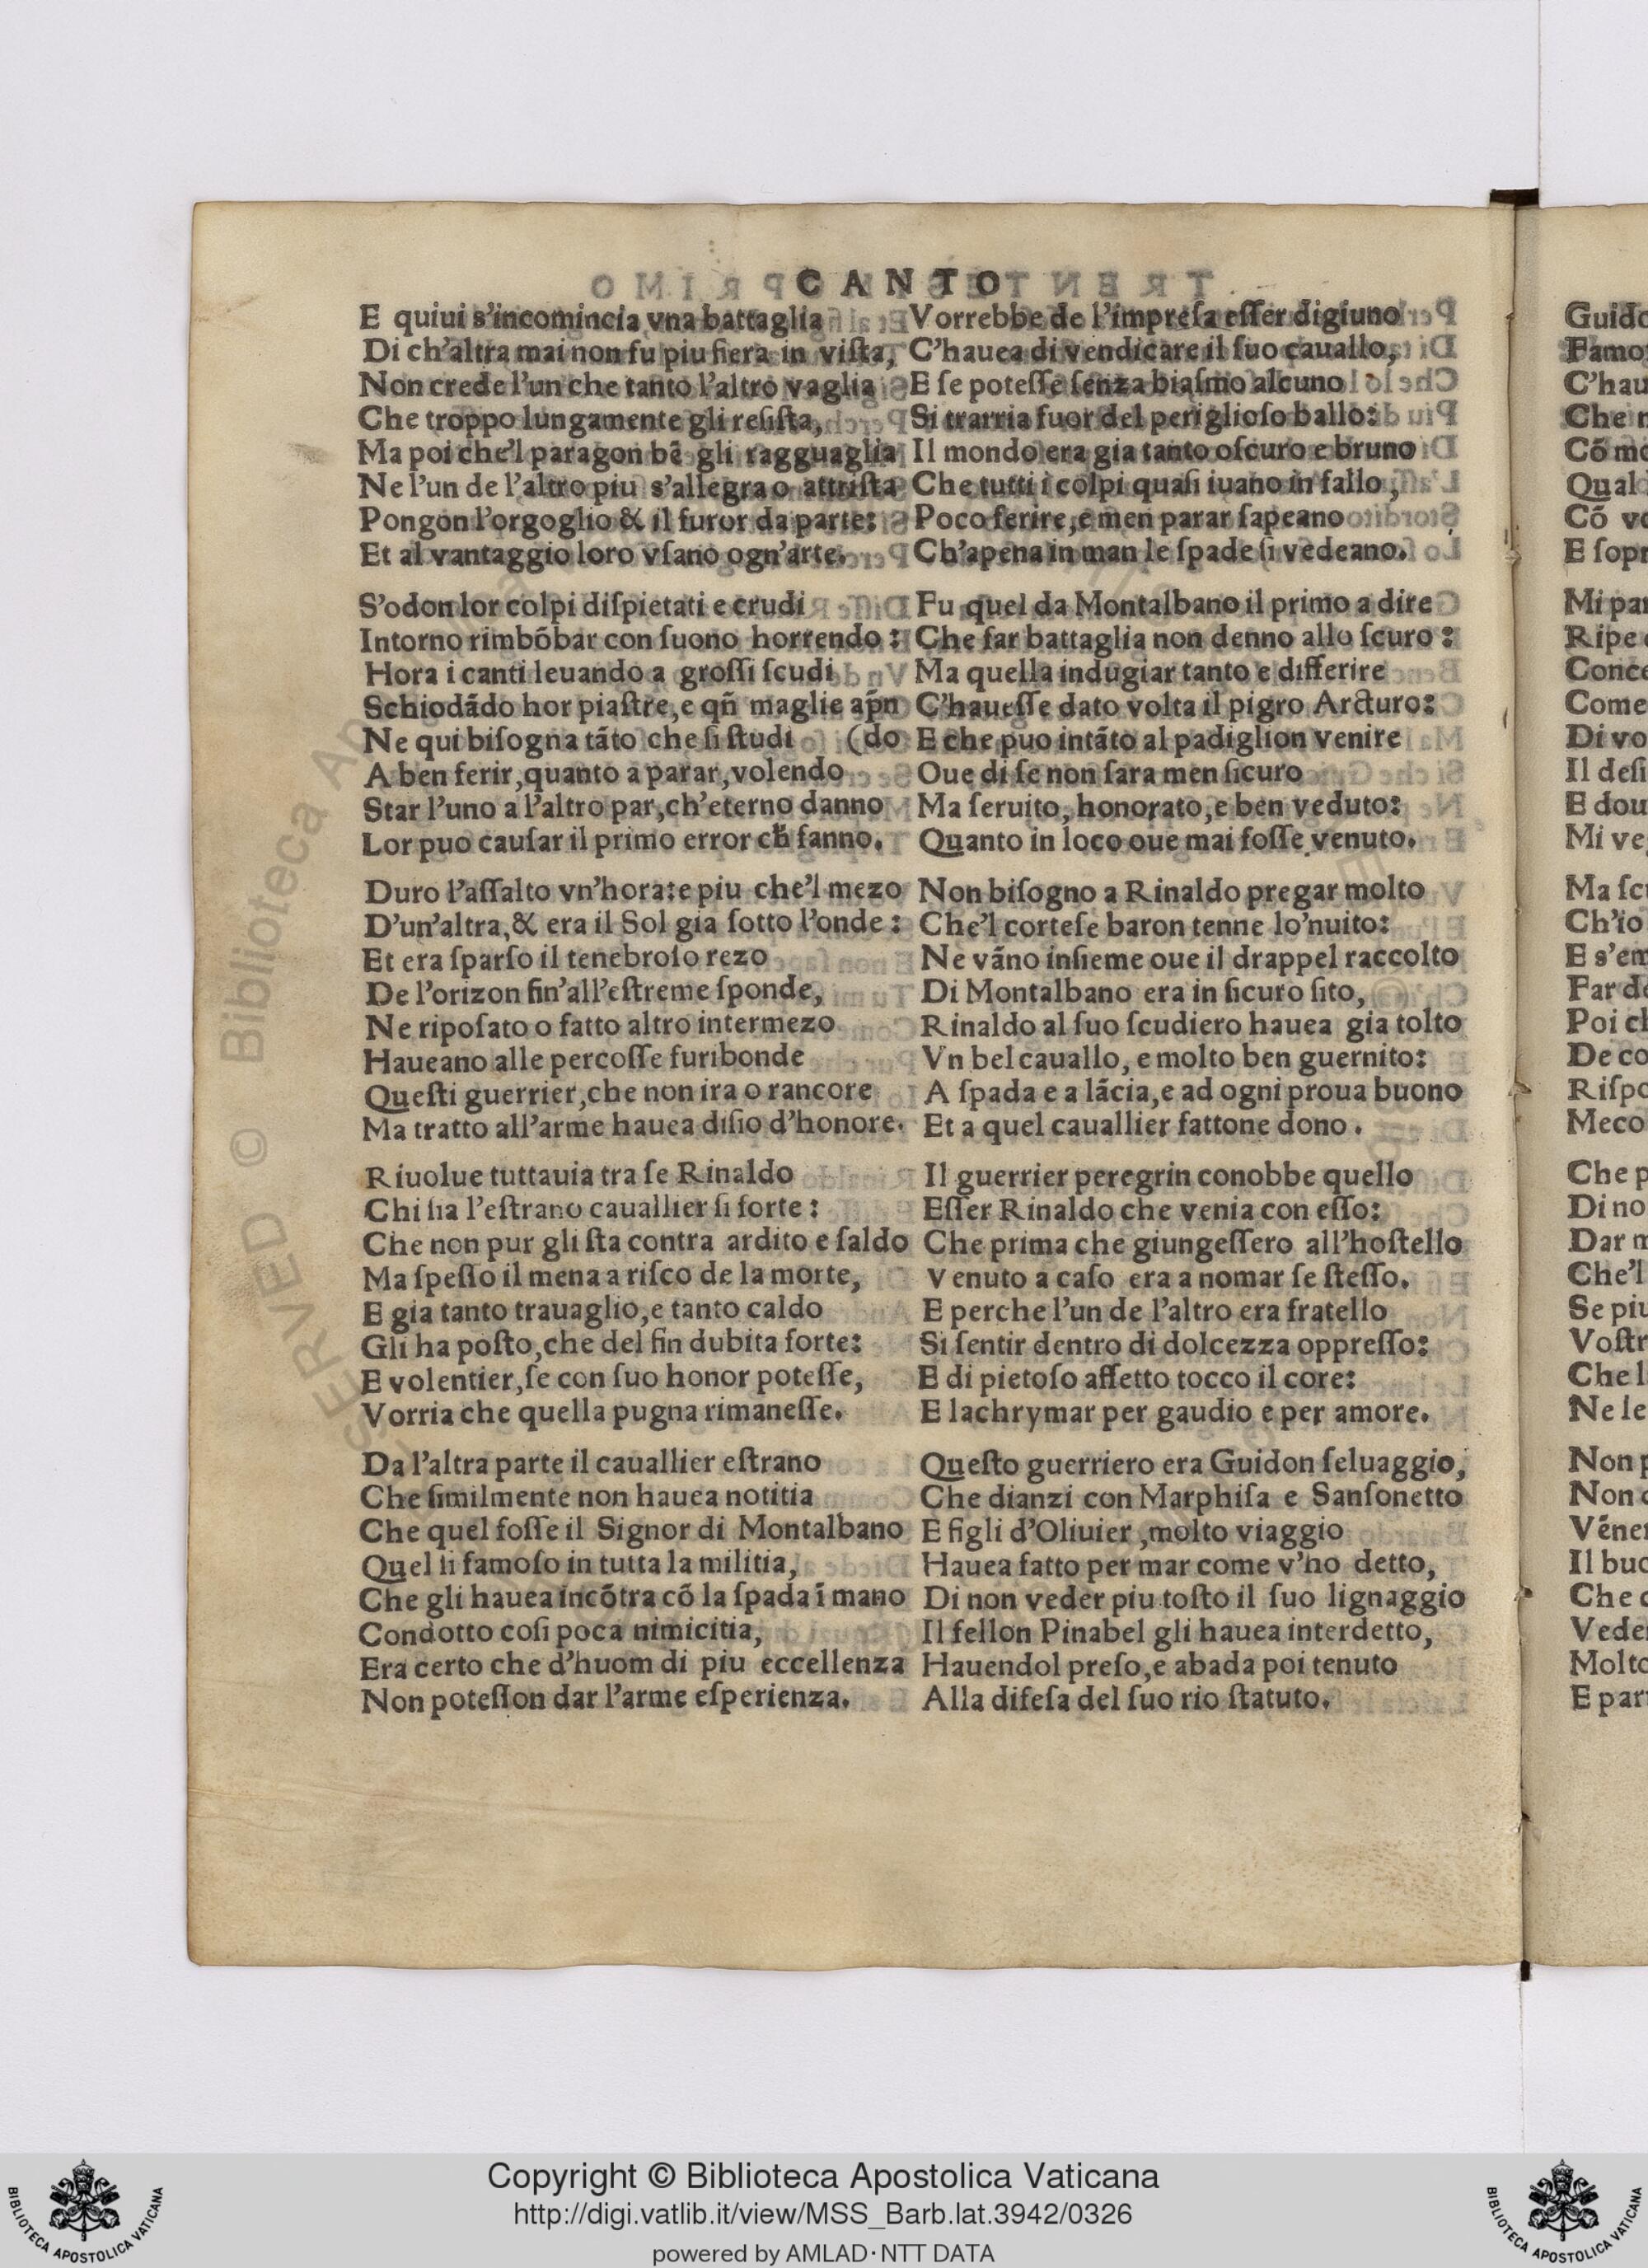 CANTO
E quiui s'incomincia vna battaglia
Di ch'altra mai non fu piu fiera in viſta,
Non crede l'un che tanto l'altro vaglia
Che troppo lungamente gli reſiſta,
Ma poi che'l paragon bẽ gli ragguaglia
Ne l'un de l'altro piu s'allegra o attriſta
Pongon l'orgoglio & il furor da parte:
Et al vantaggio loro vſano ogn'arte.
S'odon lor colpi diſpietati e crudi
Intorno rimbõbar con ſuono horrendo:
Hora i canti leuando a groſſi ſcudi
Schiodãdo hor piaſtre, e qñ maglie apñ
Ne qui biſogna tãto che ſi ſtudi (do
A ben ferir, quanto a parar, volendo
Star l'uno a l'altro par, ch'eterno danno
Lor puo cauſar il primo error ch̃ fanno.
Duro l'aſſalto vn'hora: e piu che'l mezo
D'un'altra, & era il Sol gia ſotto l'onde:
Et era ſparſo il tenebroſo rezo
De l'orizon fin'all'eſtreme ſponde,
Ne ripoſato o fatto altro intermezo
Haueano alle percoſſe furibonde
Queſti guerrier, che non ira o rancore
Ma tratto all'arme hauea diſio d'honore.
Riuolue tuttauia tra ſe Rinaldo
Chi ſia l'eſtrano cauallier ſi forte:
Che non pur gli ſta contra ardito e ſaldo
Ma ſpeſſo il mena a riſco de la morte,
E gia tanto trauaglio, e tanto caldo
Gli ha poſto, che del fin dubita forte:
E volentier, ſe con ſuo honor poteſſe,
Vorria che quella pugna rimaneſſe.
Da l'altra parte il cauallier eſtrano
Che ſimilmente non hauea notitia
Che quel foſſe il Signor di Montalbano
Quel ſi famoſo in tutta la militia,
Che gli hauea incõtra cõ la ſpada ĩ mano
Condotto coſi poca nimicitia,
Era certo che d'huom di piu eccellenza
Non poteſſon dar l'arme eſperienza.
Vorrebbe de l'impreſa eſſer digiuno
C'hauea di vendicare il ſuo cauallo,
E ſe poteſſe ſenza biaſmo alcuno
Si trarria fuor del periglioſo ballo:
Il mondo era gia tanto oſcuro e bruno
Che tutti i colpi quaſi iuano in fallo,
Poco ferire, e men parar ſapeano
Ch'apena in man le ſpade ſi vedeano.
Fu quel da Montalbano il primo a dire
Che far battaglia non denno allo ſcuro:
Ma quella indugiar tanto e differire
C'haueſſe dato volta il pigro Arcturo:
E che puo intãto al padiglion venire
Oue di ſe non ſara men ſicuro
Ma ſeruito, honorato, e ben veduto:
Quanto in loco oue mai foſſe venuto.
Non biſogno a Rinaldo pregar molto
Che'l corteſe baron tenne lo'nuito:
Ne vãno inſieme oue il drappel raccolto
Di Montalbano era in ſicuro ſito,
Rinaldo al ſuo ſcudiero hauea gia tolto
Vn bel cauallo, e molto ben guernito:
A ſpada e a lãcia, e ad ogni proua buono
Et a quel cauallier fattone dono.
Il guerrier peregrin conobbe quello
Eſſer Rinaldo che venia con eſſo:
Che prima che giungeſſero all'hoſtello
Venuto a caſo era a nomar ſe ſteſſo.
E perche l'un de l'altro era fratello
Si ſentir dentro di dolcezza oppreſſo:
E di pietoſo affetto tocco il core:
E lachrymar per gaudio e per amore.
Queſto guerriero era Guidon ſeluaggio,
Che dianzi con Marphiſa e Sanſonetto
E figli d'Oliuier, molto viaggio
Hauea fatto per mar come v'ho detto,
Di non veder piu toſto il ſuo lignaggio
Il fellon Pinabel gli hauea interdetto,
Hauendol preſo, e abada poi tenuto
Alla difeſa del ſuo rio ſtatuto.
Copyright © Biblioteca Apostolica Vaticana
http://digi.vatlib.it/view/MSS_Barb.lat.3942/0326
powered by AMLAD·NTT DATA
BIBLIOTECA APOSTOLICA VATICANA
BIBLIOTECA APOSTOLICA VATICANA